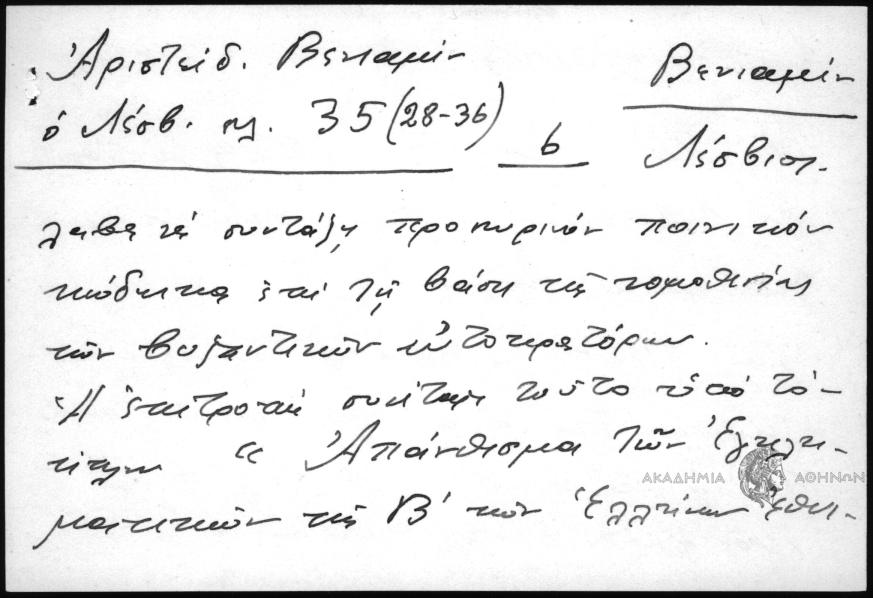 Ἀριστείδ. Βενιαμίν
ὁ Λέσβ. 35 (28-36)
6
Βενιαμίν
Λέσβιος.
λαβε νά συντάξῃ προσωρινόν ποινικόν
κώδικα ἐπί τῇ βάσει τῆς νομοθεσίας
τῶν βυζαντινῶν αὐτοκρατόρων.
Ἡ ἐπιτροπή συνέταξε τοῦτο ὑπό τόν
τίτλον “ Ἀπάνθισμα τῶν Ἐγκλη-
ματικῶν τῆς Β΄ τῶν Ἑλλήνων Ἐθνι-
ΑΚΑΔΗΜΙΑ ΑΘΗΝΩΝ